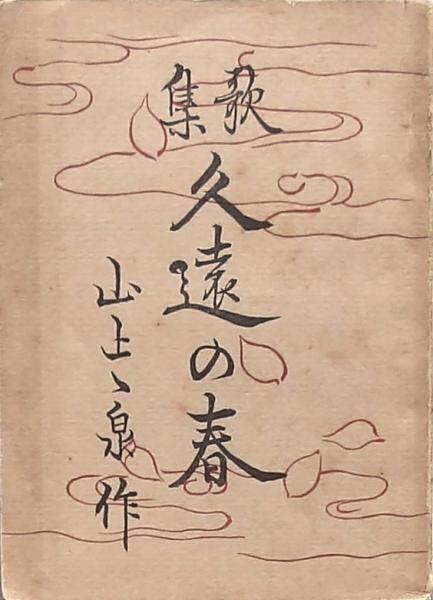 歌集
久遠の春
山上ゝ泉作